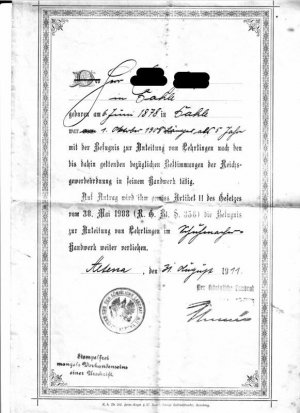 Der Herr
in Dahle
geboren am 6 Juni 1878 in Dahle
war am 1 Oktober 1908 länger als 5 Jahr
mit der Befugnis zur Anleitung von Lehrlingen nach den
bis dahin geltenden bezüglichen Bestimmungen der Reichs-
gewerbeordnung in seinem Handwerk tätig.
Auf Antrag wird ihm gemäss Artikel II des Gesetzes
vom 30. Mai 1908 (R. G. Bl. S. 356) die Befugnis
zur Anleitung von Lehrlingen im Schuhmacher-
Handwerk weiter verliehen.
Altena, den 31 August 1911.
Der Königliche Landrat
Stempelfrei
mangels Vorhandenseins
einer Urschrift.